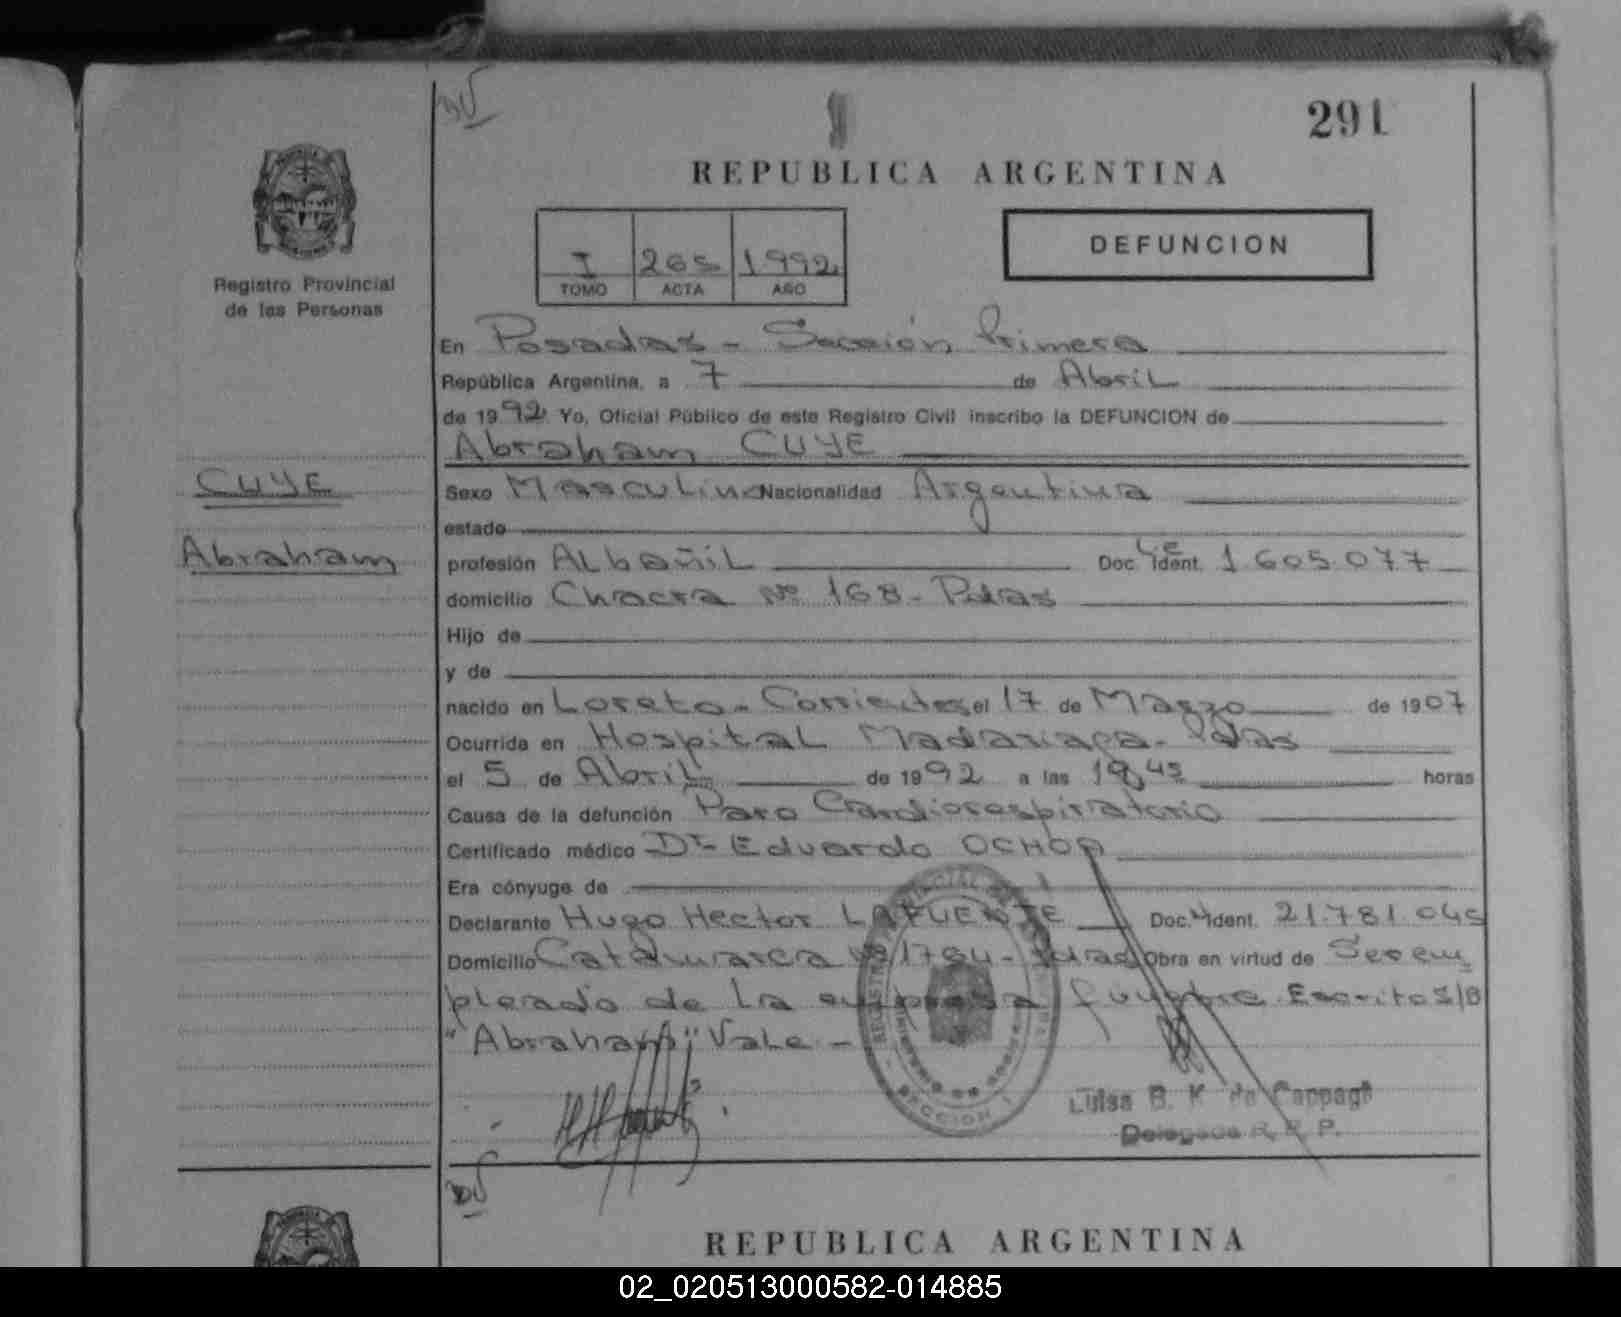 291
REPUBLICA ARGENTINA
DEFUNCION
I 265 1992
TOMO ACTA AÑO
Registro Provincial
de las Personas
En Posadas - Sección Primera
República Argentina, a 7 de Abril
de 1992 Yo, Oficial Público de este Registro Civil inscribo la DEFUNCION de
Abraham CUYE
CUYE
Abraham
Sexo Masculino Nacionalidad Argentina
estado
profesión Albañil Doc. Ident. L.E 1.605.077
domicilio Chacra Nº 168 - Pdas
Hijo de
y de
nacido en Loreto - Corrientes el 17 de Marzo de 1907
Ocurrida en Hospital Madariaga - Pdas
el 5 de Abril de 1992 a las 18,45 horas
Causa de la defunción Paro Cardiorespiratorio
Certificado médico Dr Eduardo OCHOA
Era cónyuge de
Declarante Hugo Hector LAFUENTE Doc. Ident. 21.781.045
Domicilio Catamarca Nº 1784 - Pdas Obra en virtud de Ser em
pleado de la empresa funebre. Escrito S/B
"Abraham" Vale -
SECCION 1
Luisa B. K. de Cappagli
Delegada R. P. P.
REPUBLICA ARGENTINA
02_020513000582-014885